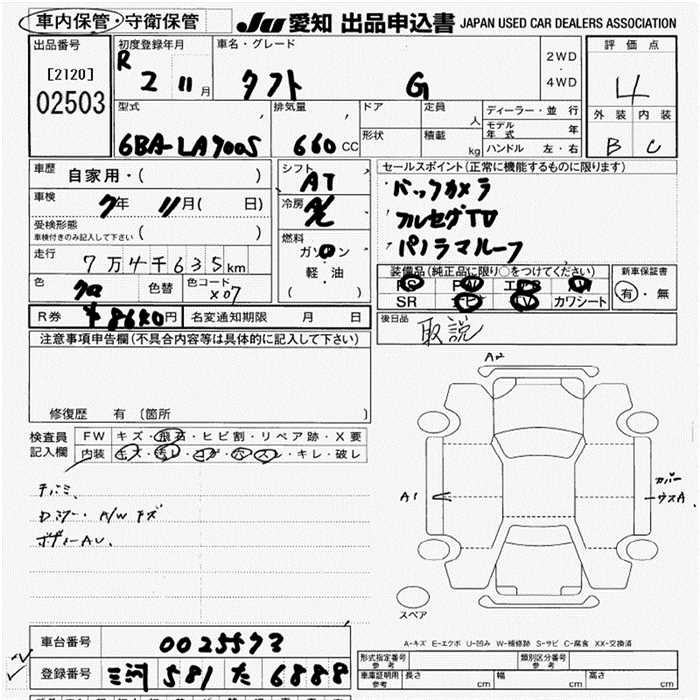 車内保管・守衛保管
JU 愛知 出品申込書 JAPAN USED CAR DEALERS ASSOCIATION
出品番号
[2120]
02503
初度登録年月
R 2 11月
車名・グレード
タフト G
2WD
・
4WD
評価点
4
外装 内装
B C
型式
6BA-LA900S
排気量
660 CC
ドア
形状
定員
人
積載
kg
ディーラー・並 行
モデル年式 年
ハンドル 左・右
車歴
自家用・( )
車検
7年 11月( 日)
受検形態
車検付きのみ記入して下さい ( )
走行
7万4千635km
色
クロ
色替
色コード
X07
シフト
AT
冷房
A/C
燃料
ガソリン
軽・油
( )
セールスポイント(正常に機能するものに限ります)
バックカメラ
フルセグTV
パノラマルーフ
装備品(純正品に限り○をつけてください)
PS PW エアB AW
SR ナビ TV カワシート
新車保証書
有・無
R券
¥8680円
名変通知期限 月 日
後日品
取説
注意事項申告欄(不具合内容等は具体的に記入して下さい)
修復歴 有 (箇所 )
検査員記入欄
FW キズ・飛石・ヒビ割・リペア跡・X要
内装 キズ・汚レ・コゲ・穴・スレ・キレ・破レ
A2
A1
カバー
ウスA
スペア
A-キズ E-エクボ U-凹み W-補修跡 S-サビ C-腐食 XX-交換済
車台番号
0025593
登録番号
三河 581 た 6888
形式指定番号
参考
類別区分番号
参考
車庫証明用
参考
長さ cm
幅 cm
高さ cm